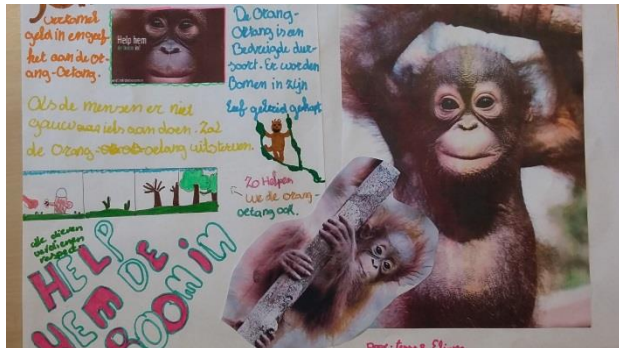 verzamel
geld in en geef
het aan de Or-
ang-Oetang.
Help hem
De Orang-
Oetang is een
Bedreigde dier-
soort. Er worden
Bomen in zijn
Leef gebied gekapt
Als de mensen er niet
gauw aan iets aan doen. Zal
de Orang-oetang uitsterven.
Zo Helpen
we de orang-
oetang ook.
alle dieren
verdienen
respect
HELP
HEM DE
BOOM in